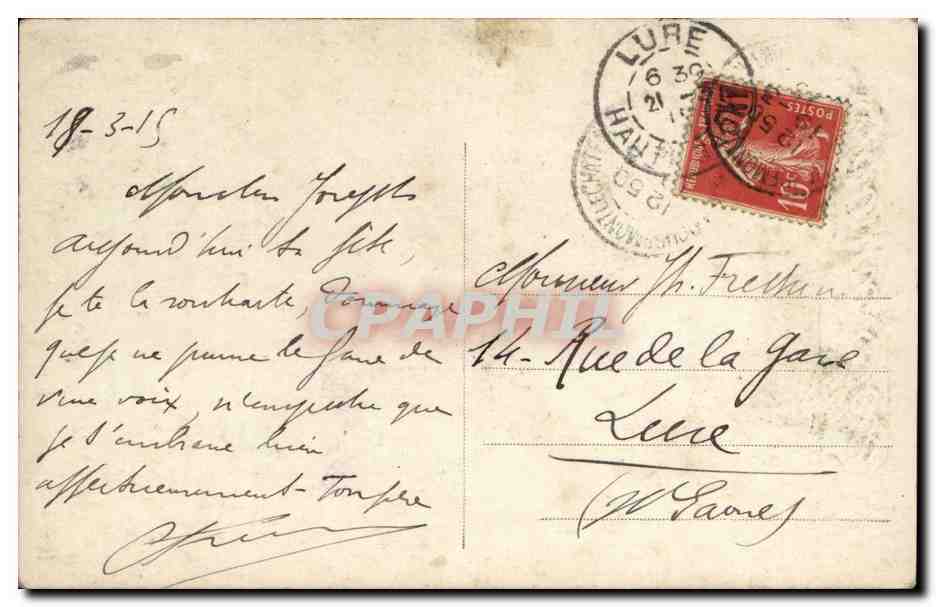 18-3-15
Mon cher Joseph
aujourd'hui ta fête,
je te la souhaite, Dommage
que je ne puisse le faire de
vive voix, n'empêche que
je t'embrasse bien
affectueusement - Ton père
Monsieur Jh.
14 - Rue de la Gare
Lure
(Hte Saône)
LURE
6 30
21
HAUTE
12 50
POSTES
10c
CPAPHIL